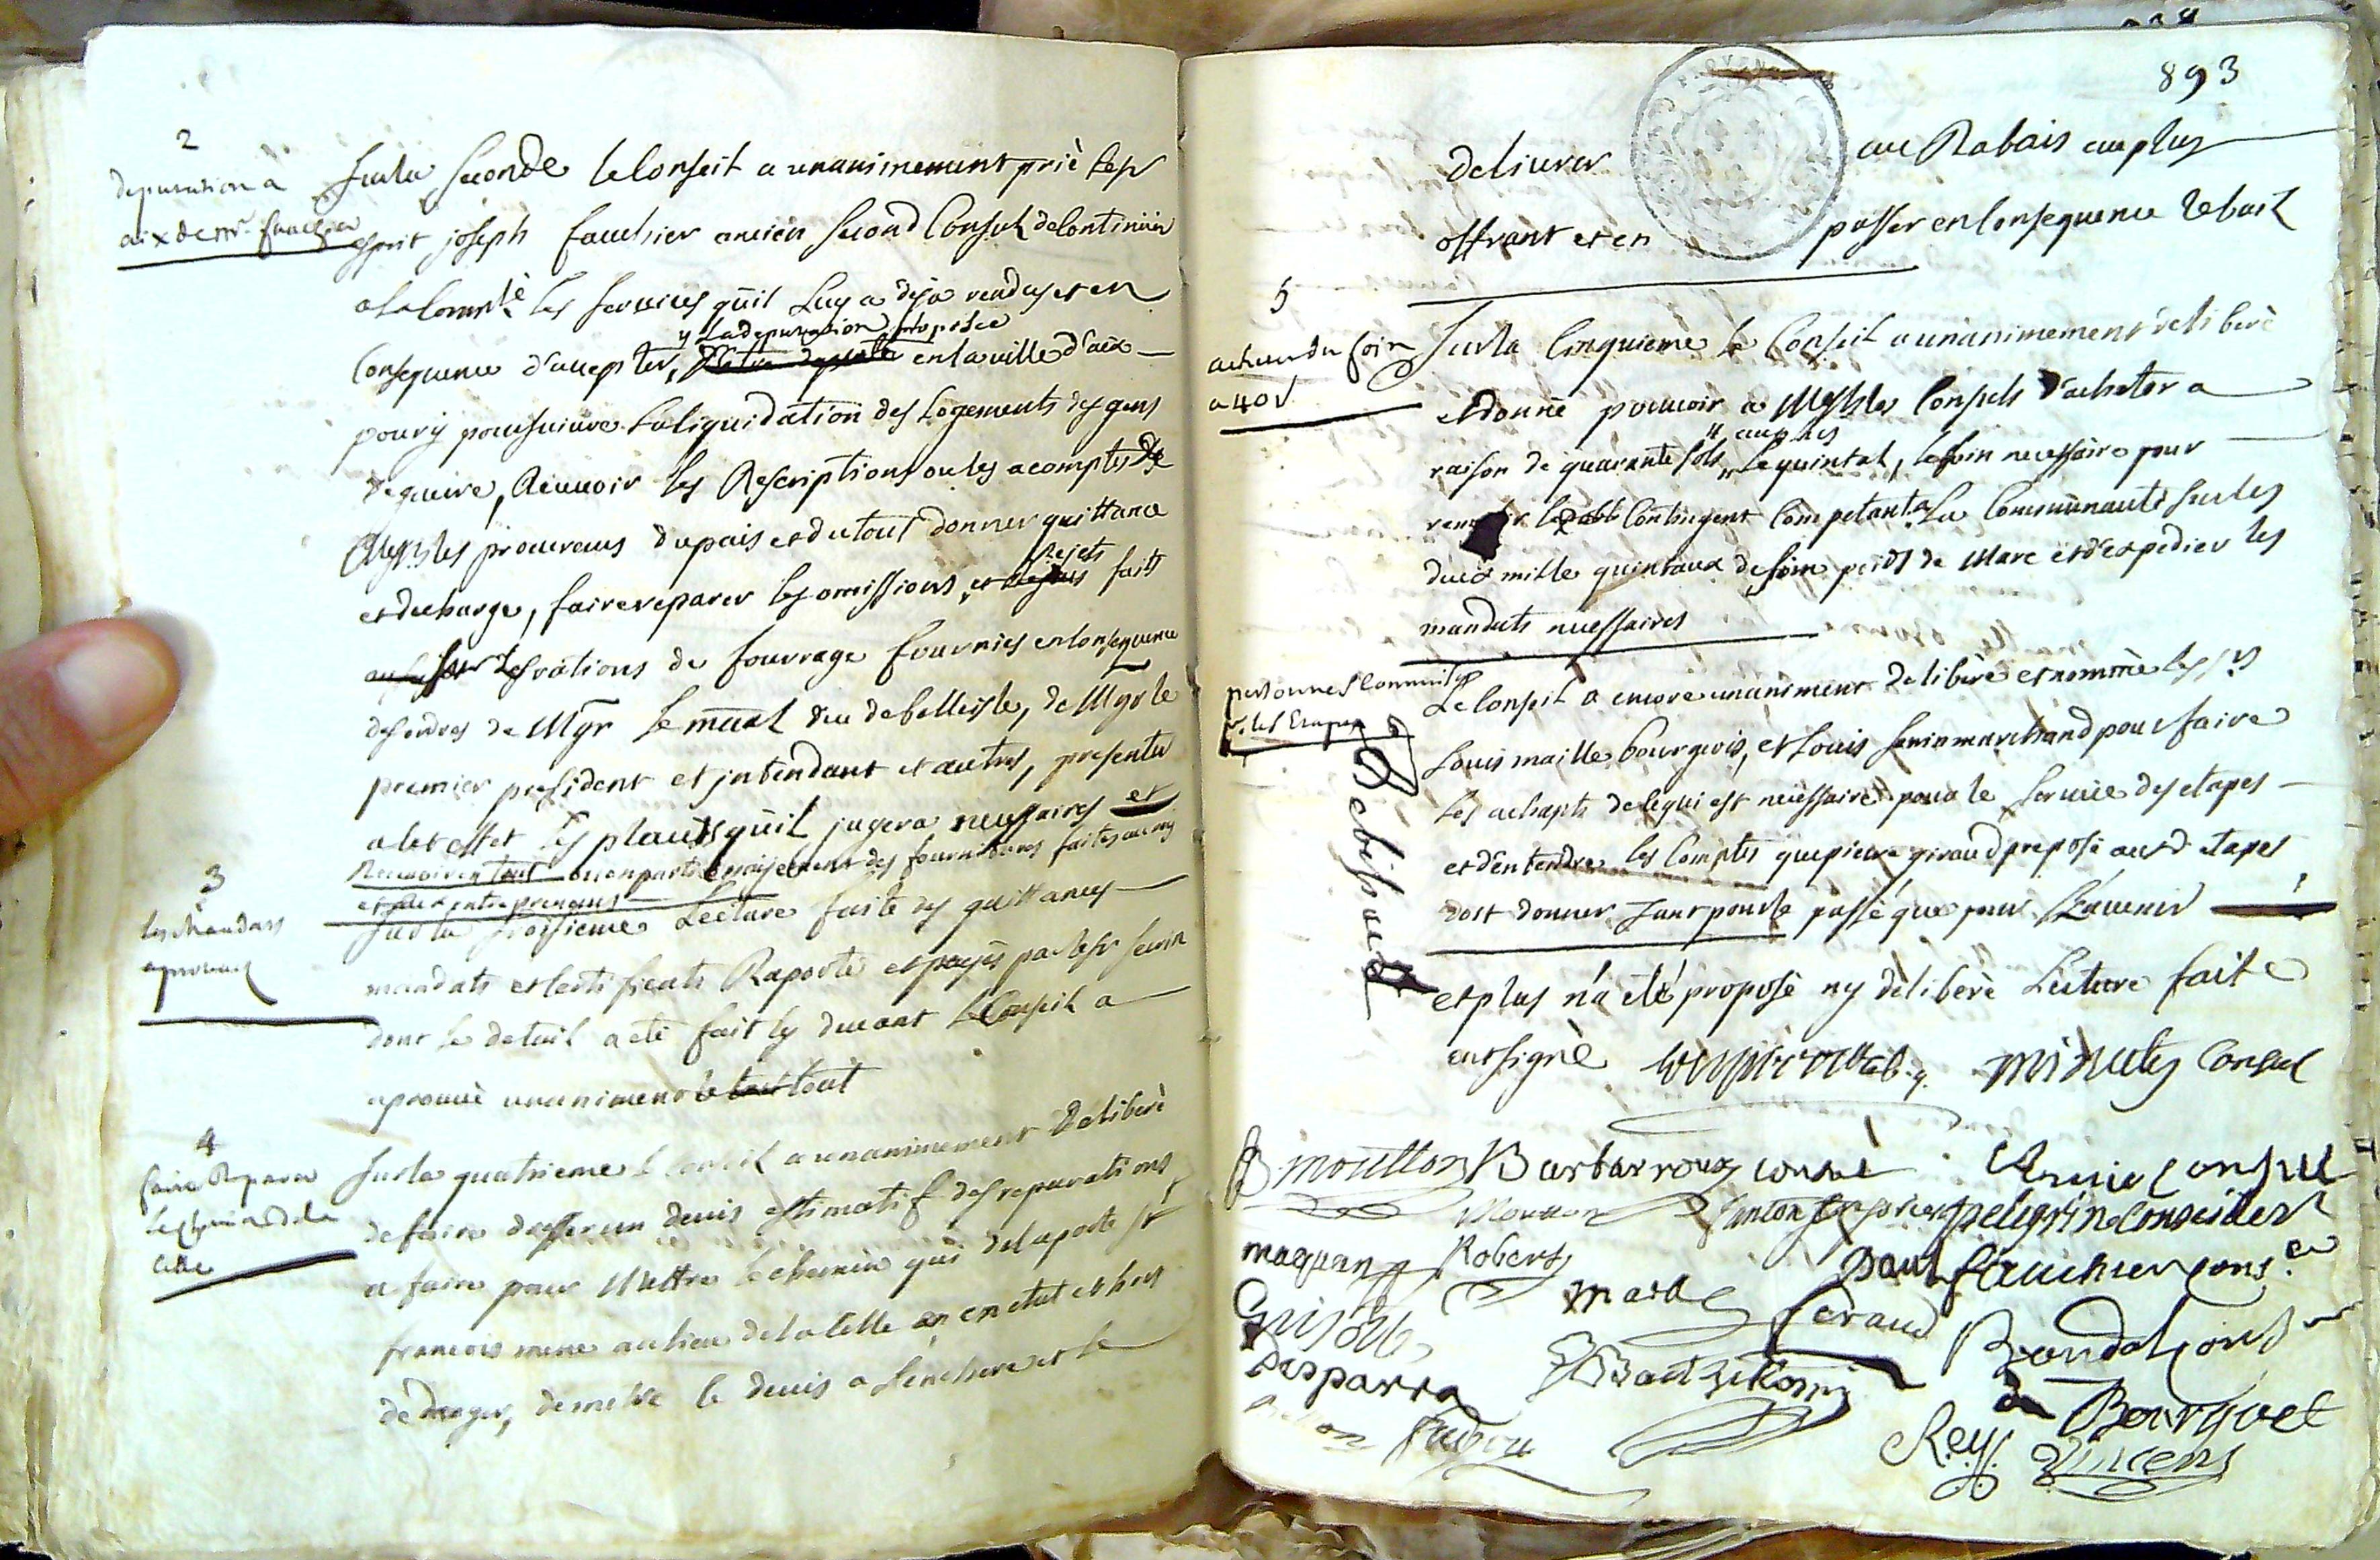 2
deputation a
aix de mr. fauchier
Sur la Seconde le Conseil a unanimement prié le sr
esprit joseph fauchier ancien second Consul de Continüer
a la Commté. les services qu'il Luy a déja rendus et en
y La deputation proposée
Consequence d'accepter, d'etre deputté en la ville d'aix
pour y poursuivre La liquidation des Logements des gens
de guerre, Recevoir les Rescriptions ou les acomptes de
Mgrs les procureurs du pais et du tout donner quittance
Rejets
et decharge, faire reparer les omissions, et faits
sur Les rations de fourrage fournies en Consequence
des ordres de Mgr le maal duc de belleisle, de Mgr le
premier president et jntendant et autres, presenter
a cet effet les placets qu'il jugera necessaires et
Recevoir en tout ou en partie le payement des fournitures faites au roy
et aux entrepreneurs
3
les Mandats
aprouvés
Sur la troisieme Lecture faite des quittances
mandats et Certificats Raportés et payés par le sr
dont le detail a eté fait cy devant le Conseil a
aprouvé unanimemt le tout tout
4
faire Reparer
le chemin de la
celle
Sur la quatrieme le conseil a unanimement Deliberé
de faire dresser un devis estimatif des reparations
a faire pour Mettre le chemin qui de la porte st
francois mene au lieu de la Celle en etat et hors
de danger, de mettre le devis a L'enchere et le
893
delivrer au Rabais au plus
offrant et en passer en Consequence le bail
5
achat du foin
a 40 s
Sur la Cinquieme le Conseil a unanimement deliberé
et donné pouvoir a Mrs les Consuls d'acheter a
raison de quarante sols, Le quintal, le foin necessaire pour
remplir le Contingent Competant a La Communauté sur les
deux mille quintaux de foin poids de Marc et d'expedier les
mandats necessaires
personnes Commises
p. les Etapes
Le Conseil a encore unaniment deliberé et nommé les srs
Louis maille bourgeois, et Louis marchand pour faire
les achapts de ce qui est necessaire pour le service des etapes
et d'entendre les Comptes que pierre giraud preposé aux d. etapes
doit donner tant pour le passé que pour L'avenir
et plus n'a eté proposé ny deliberé Lecture faite
ont signé minuty Consul
B. moutton Barbarroux Consul
Mouton pelegrin Conseiller
maquan Robert paul fauchier cons.er
mara
Desparra
Rey Bourguet
Vincens